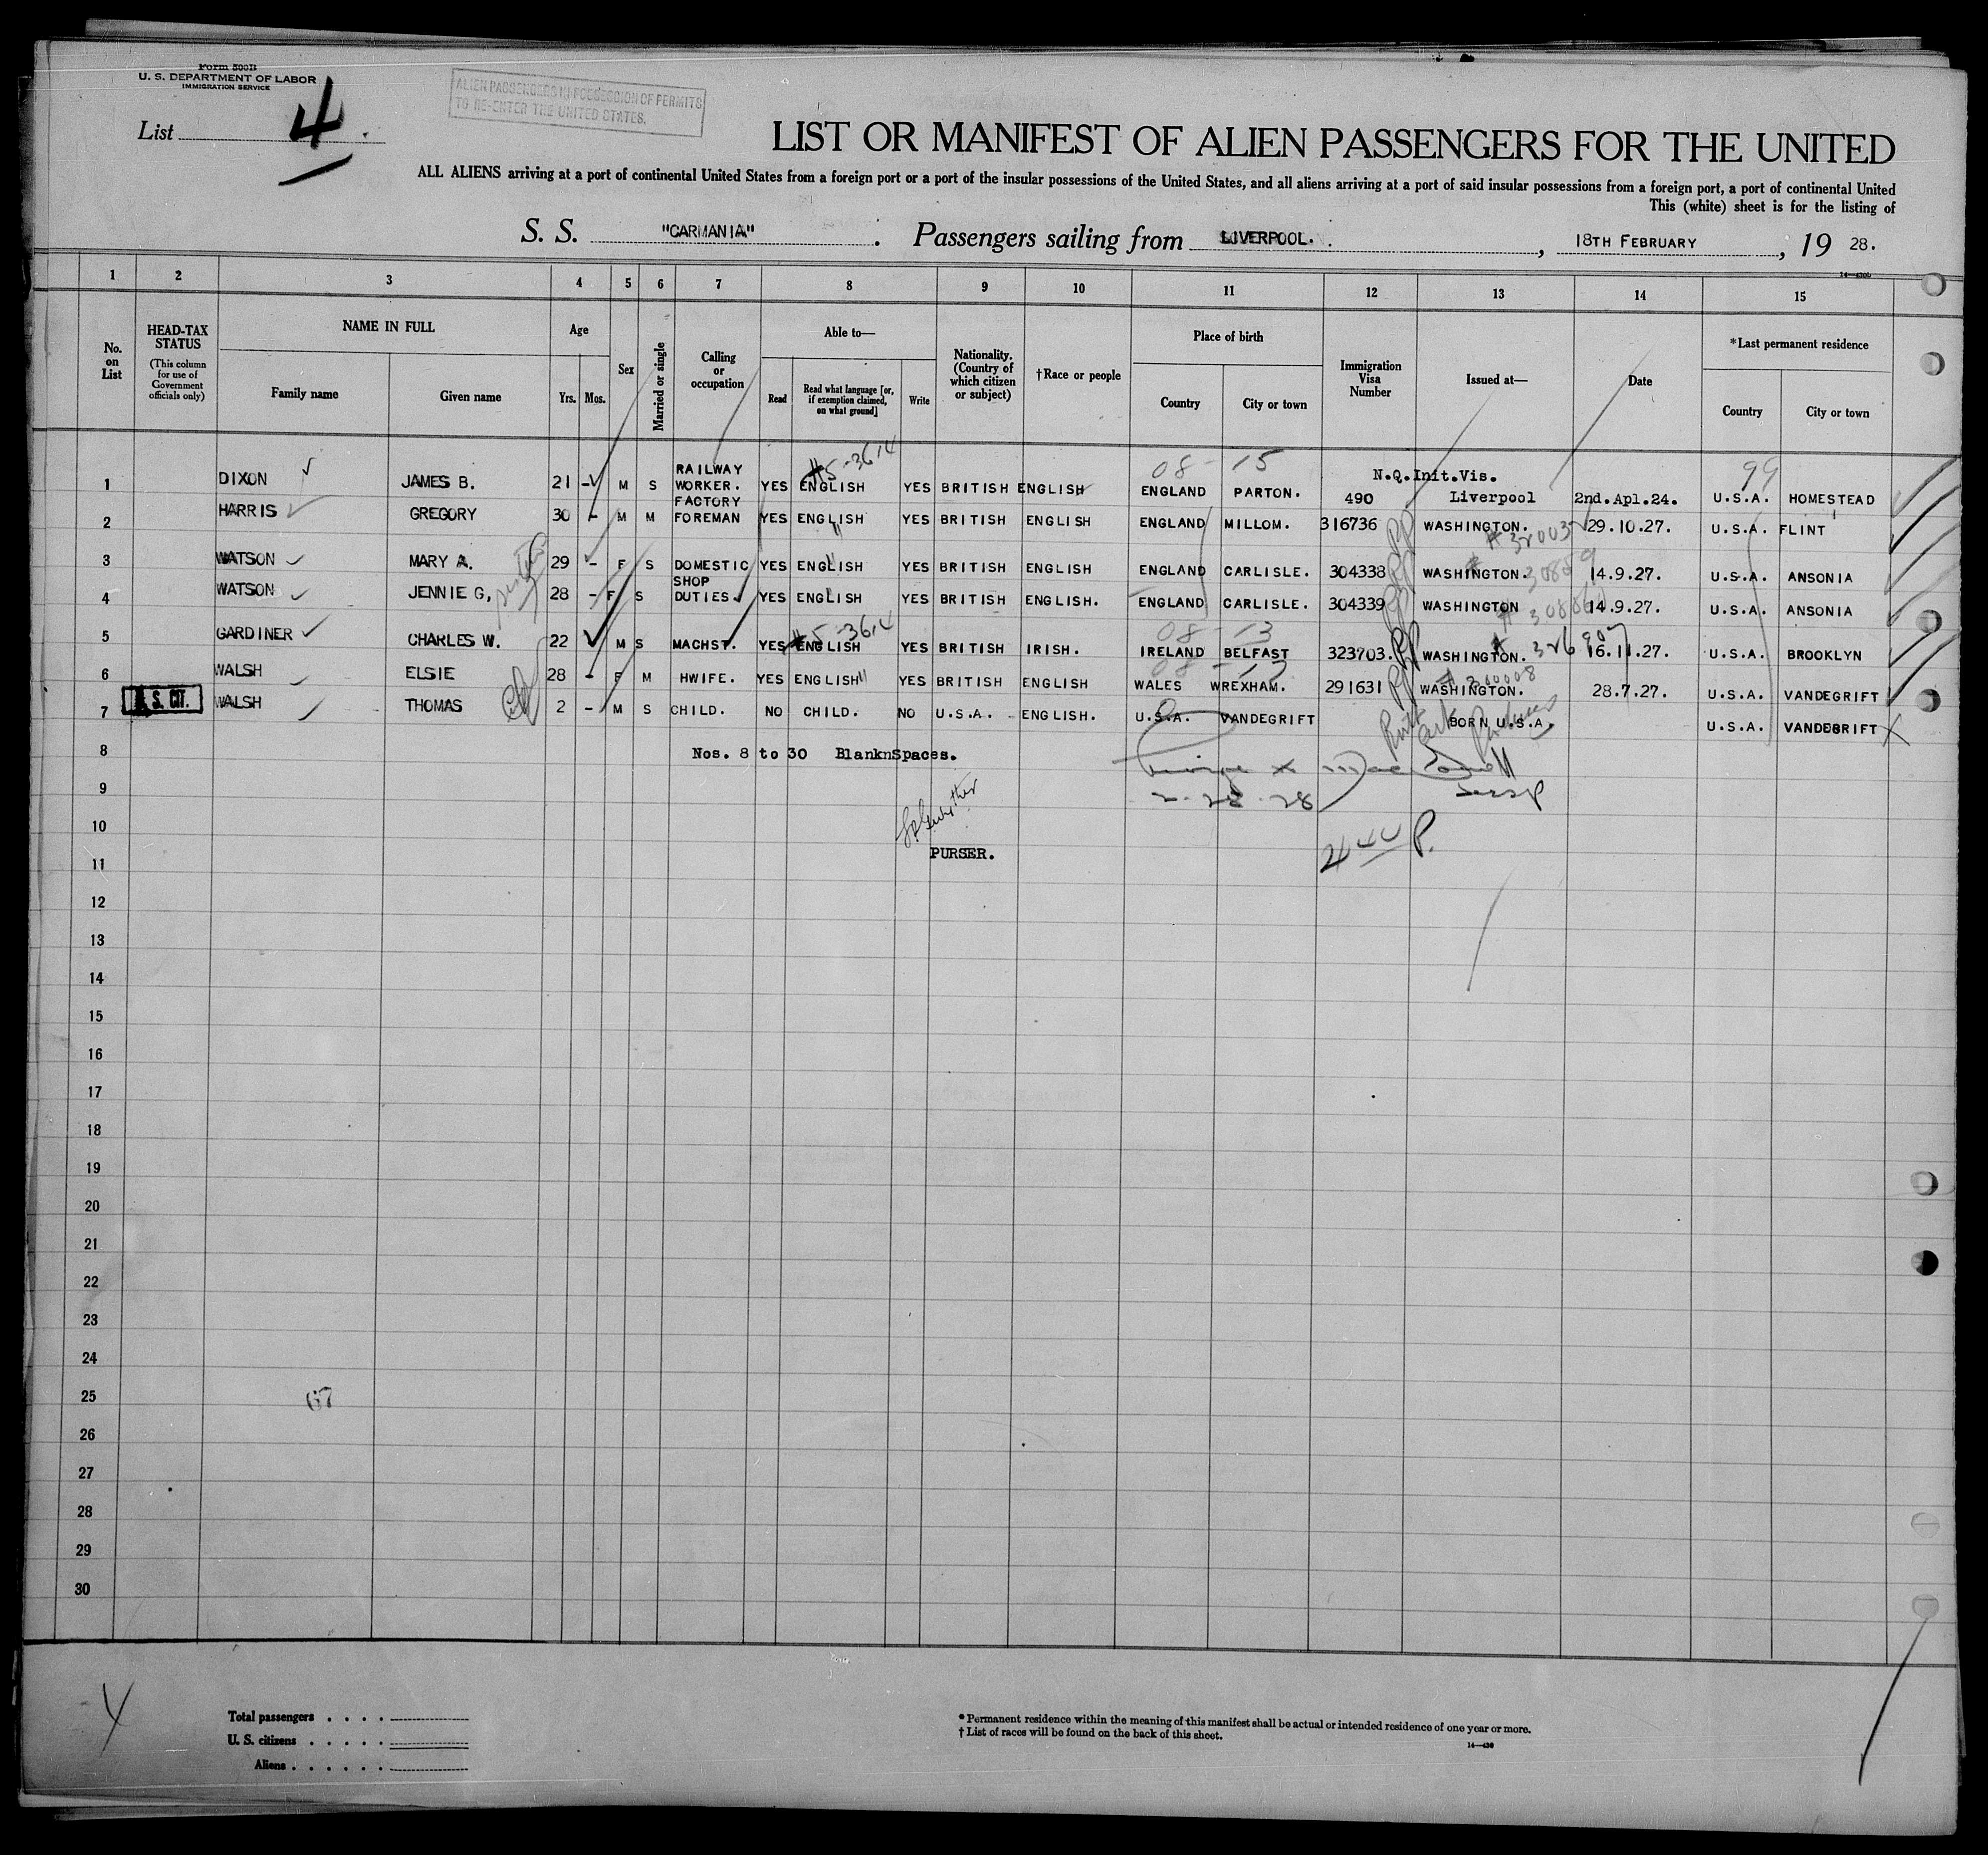 Form 500B
U. S. DEPARTMENT OF LABOR
IMMIGRATION SERVICE
List 4
ALIEN PASSENGERS IN POSSESSION OF PERMITS
TO RE-ENTER THE UNITED STATES.
LIST OR MANIFEST OF ALIEN PASSENGERS FOR THE UNITED
ALL ALIENS arriving at a port of continental United States from a foreign port or a port of the insular possessions of the United States, and all aliens arriving at a port of said insular possessions from a foreign port, a port of continental United
This (white) sheet is for the listing of
S. S. "CARMANIA". Passengers sailing from LIVERPOOL., 18TH FEBRUARY, 19 28.
14—430b
1 2 3 4 5 6 7 8 9 10 11 12 13 14 15
No. on List
HEAD-TAX STATUS (This column for use of Government officials only)
NAME IN FULL Family name Given name
Age Yrs. Mos.
Sex
Married or single
Calling or occupation
Able to— Read Read what language [or, if exemption claimed, on what ground] Write
Nationality. (Country of which citizen or subject)
†Race or people
Place of birth Country City or town
Immigration Visa Number
Issued at—
Date
*Last permanent residence Country City or town
#5-3614 08-15 N.Q.Init.Vis. 99
1 DIXON JAMES B. 21 - M S RAILWAY WORKER. YES ENGLISH YES BRITISH ENGLISH ENGLAND PARTON. 490 Liverpool 2nd.Apl.24. U.S.A. HOMESTEAD
2 HARRIS GREGORY 30 - M M FACTORY FOREMAN YES ENGLISH YES BRITISH ENGLISH ENGLAND MILLOM. 316736 WASHINGTON. 29.10.27. U.S.A. FLINT
3 WATSON MARY A. 29 - F S DOMESTIC YES ENGLISH YES BRITISH ENGLISH ENGLAND CARLISLE. 304338 WASHINGTON. 14.9.27. U.S.A. ANSONIA
4 WATSON JENNIE G, 28 - F S SHOP DUTIES. YES ENGLISH YES BRITISH ENGLISH. ENGLAND CARLISLE. 304339 WASHINGTON 14.9.27. U.S.A. ANSONIA
#5-3614 08-13
5 GARDINER CHARLES W. 22 M S MACHST. YES ENGLISH YES BRITISH IRISH. IRELAND BELFAST 323703. WASHINGTON. 16.11.27. U.S.A. BROOKLYN
6 WALSH ELSIE 28 - F M HWIFE. YES ENGLISH YES BRITISH ENGLISH WALES WREXHAM. 291631 WASHINGTON. 28.7.27. U.S.A. VANDEGRIFT
7 U.S. CIT. WALSH THOMAS 2 - M S CHILD. NO CHILD. NO U.S.A. ENGLISH. U.S.A. VANDEGRIFT BORN U.S.A. U.S.A. VANDEGRIFT
8 Nos. 8 to 30 BlanknSpaces.
9 2-28-28
10
11 PURSER.
12
13
14
15
16
17
18
19
20
21
22
23
24
25 67
26
27
28
29
30
Total passengers
U. S. citizens
Aliens
* Permanent residence within the meaning of this manifest shall be actual or intended residence of one year or more.
† List of races will be found on the back of this sheet.
14—430